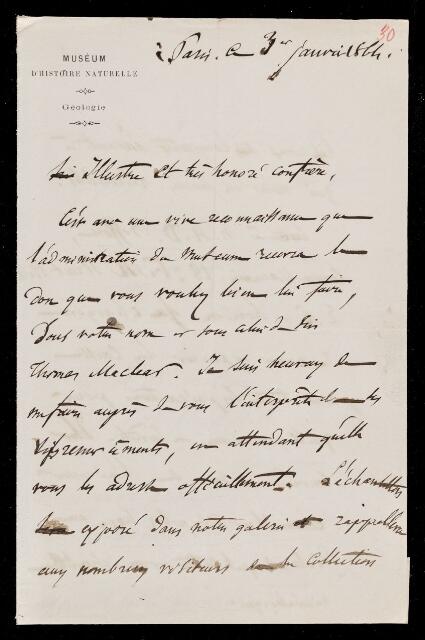 30
MUSÉUM
D'HISTOIRE NATURELLE
Géologie
à Paris. ce 3 Janvier 1864.
Illustre et très honoré confrère,
C'est avec une vive reconnaissance que
l'administration du Museum recevra le
don que vous voulez bien lui faire,
Sous votre nom et sous celui de Sir
Thomas Maclear. Je suis heureux de
me faire auprès de vous l'interprète de ses
remerciements, en attendant qu'elle
vous les adresse officiellement. L'échantillon
exposé dans notre galerie rappellera
aux nombreux visiteurs de la Collection